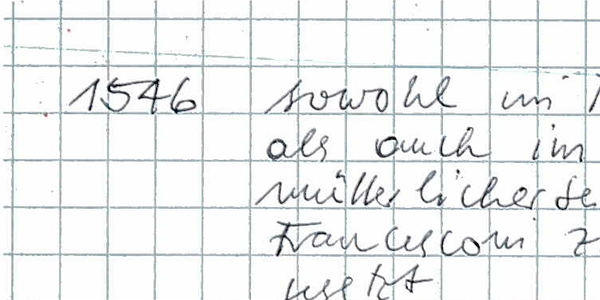 1546 sowohl im
als auch im
müllerlicher
Francesconi z